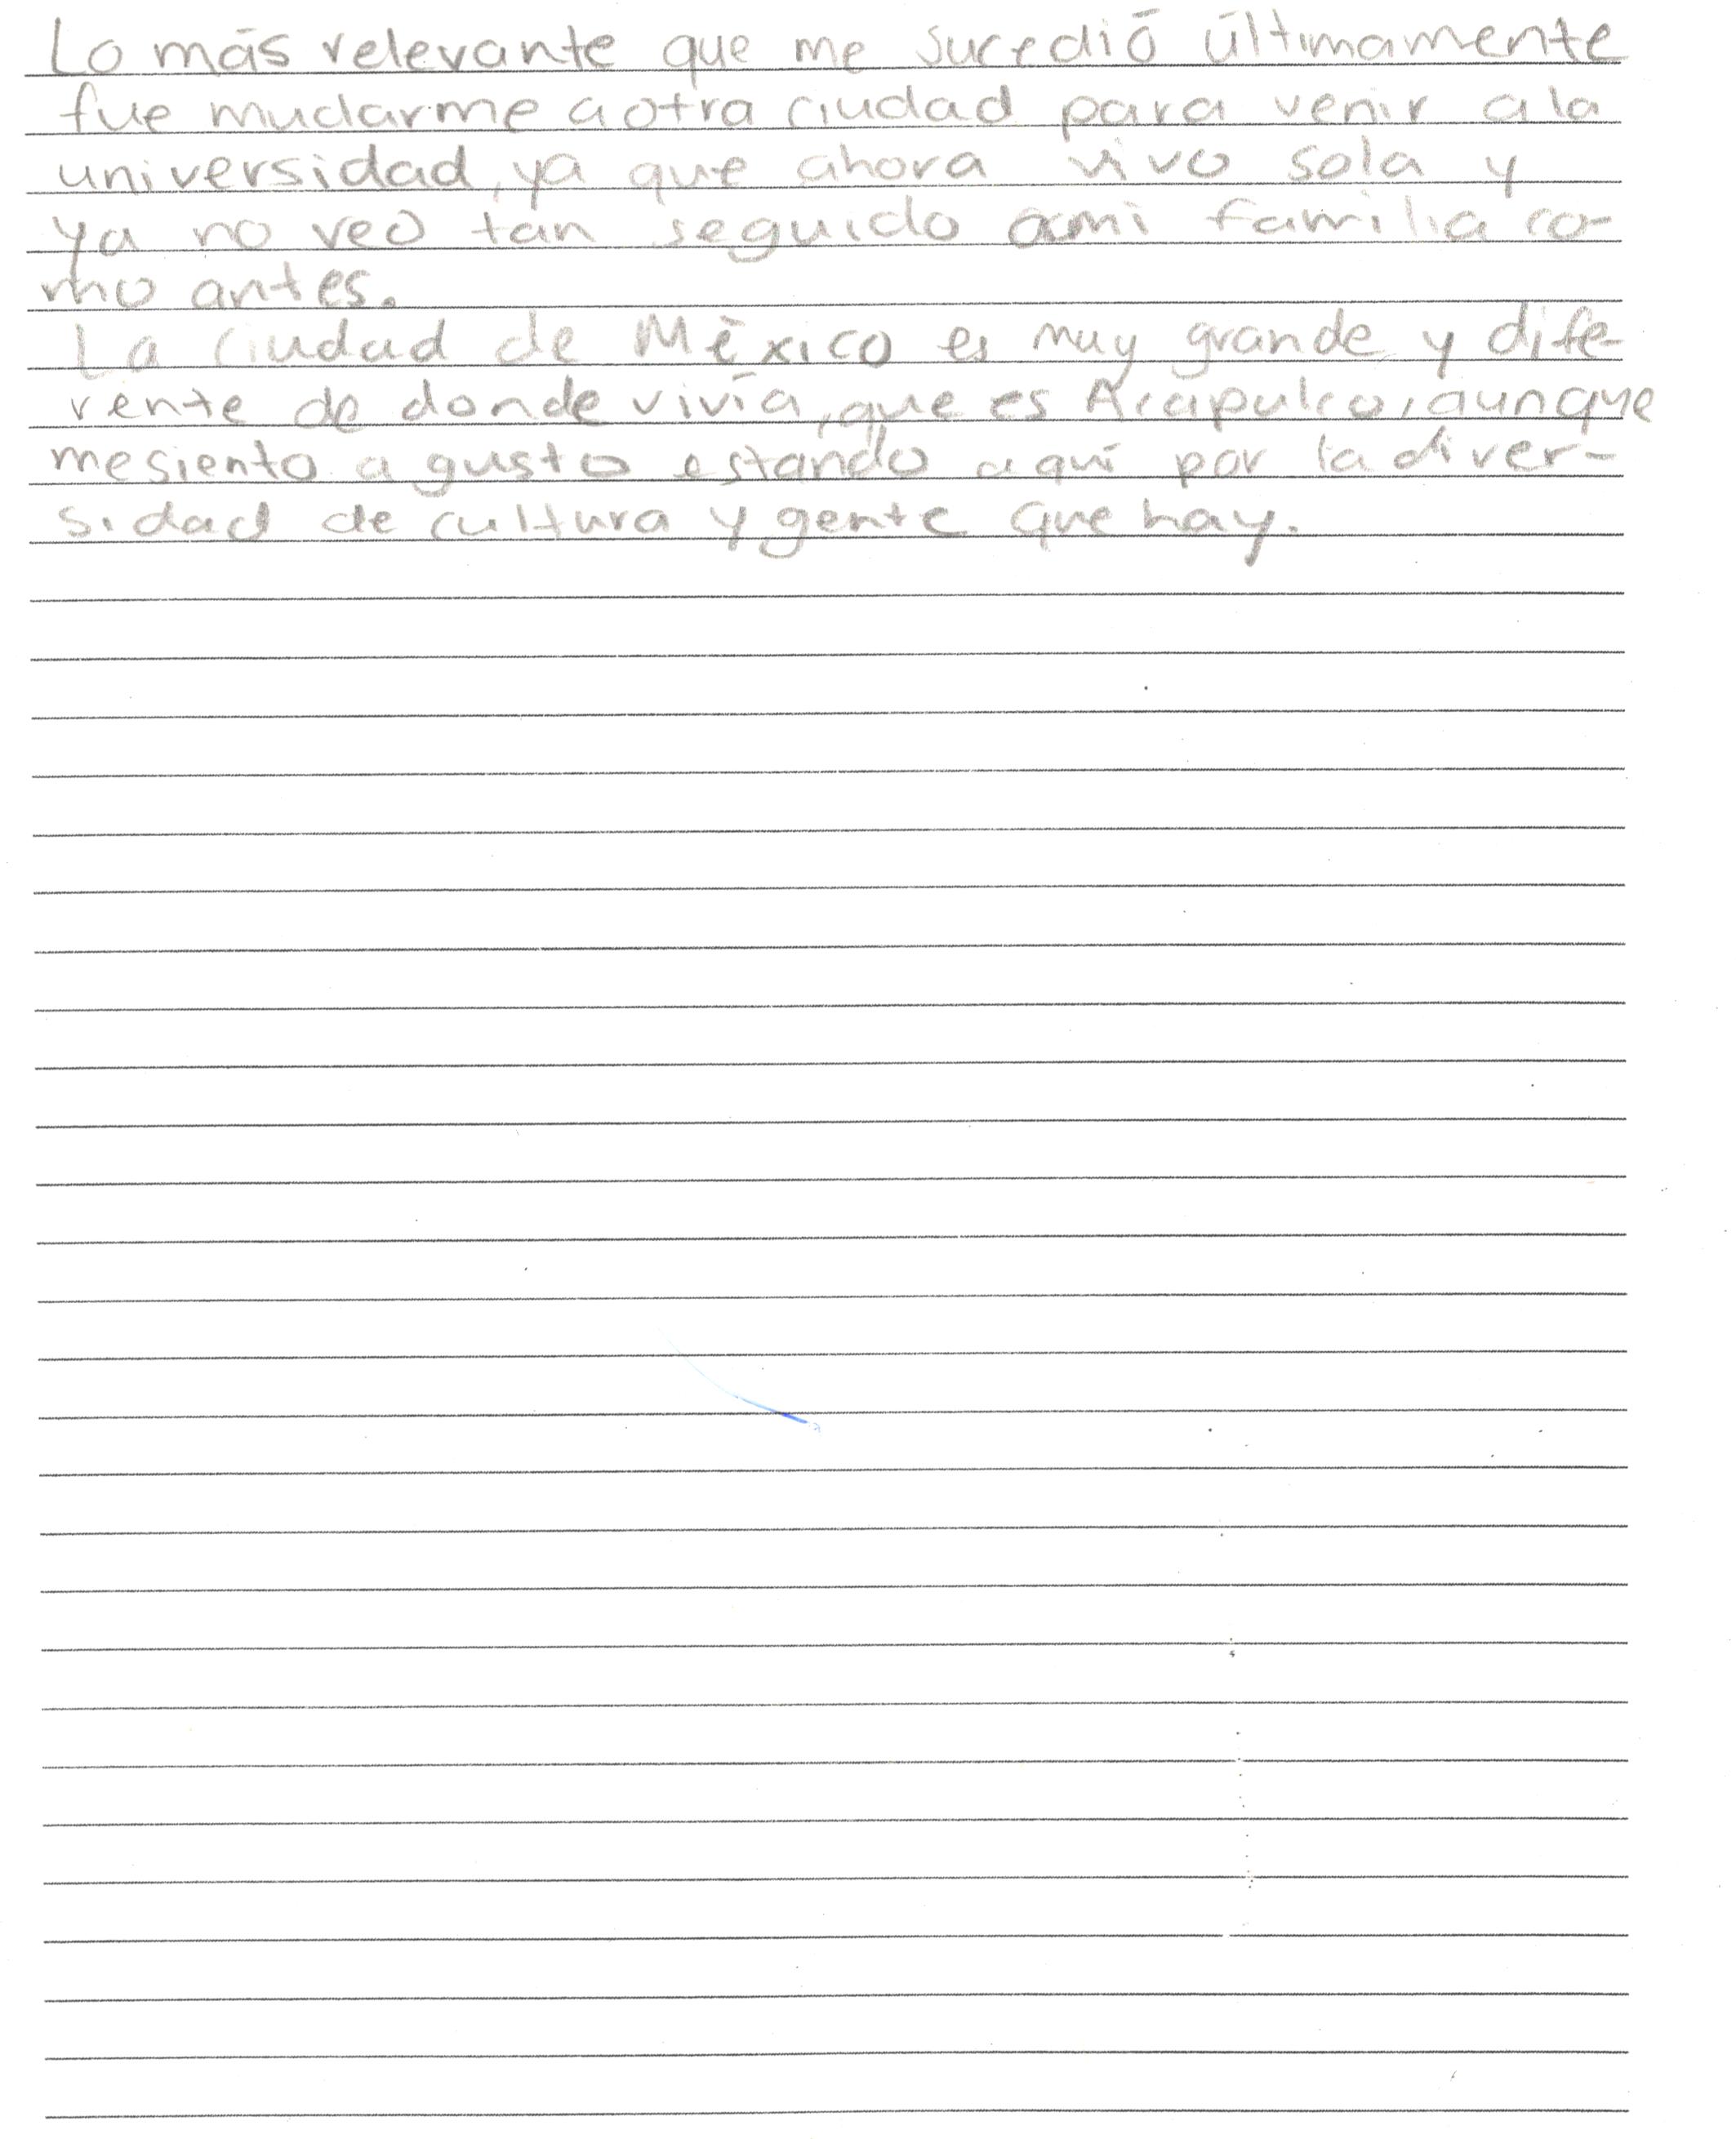 Lo más relevante que me sucedió últimamente
fue mudarme a otra ciudad para venir a la
universidad, ya que ahora vivo sola y
ya no veo tan seguido a mi familia co-
mo antes.
La ciudad de México es muy grande y dife-
rente de donde vivía, que es Acapulco, aunque
me siento a gusto estando aquí por la diver-
sidad de cultura y gente que hay.